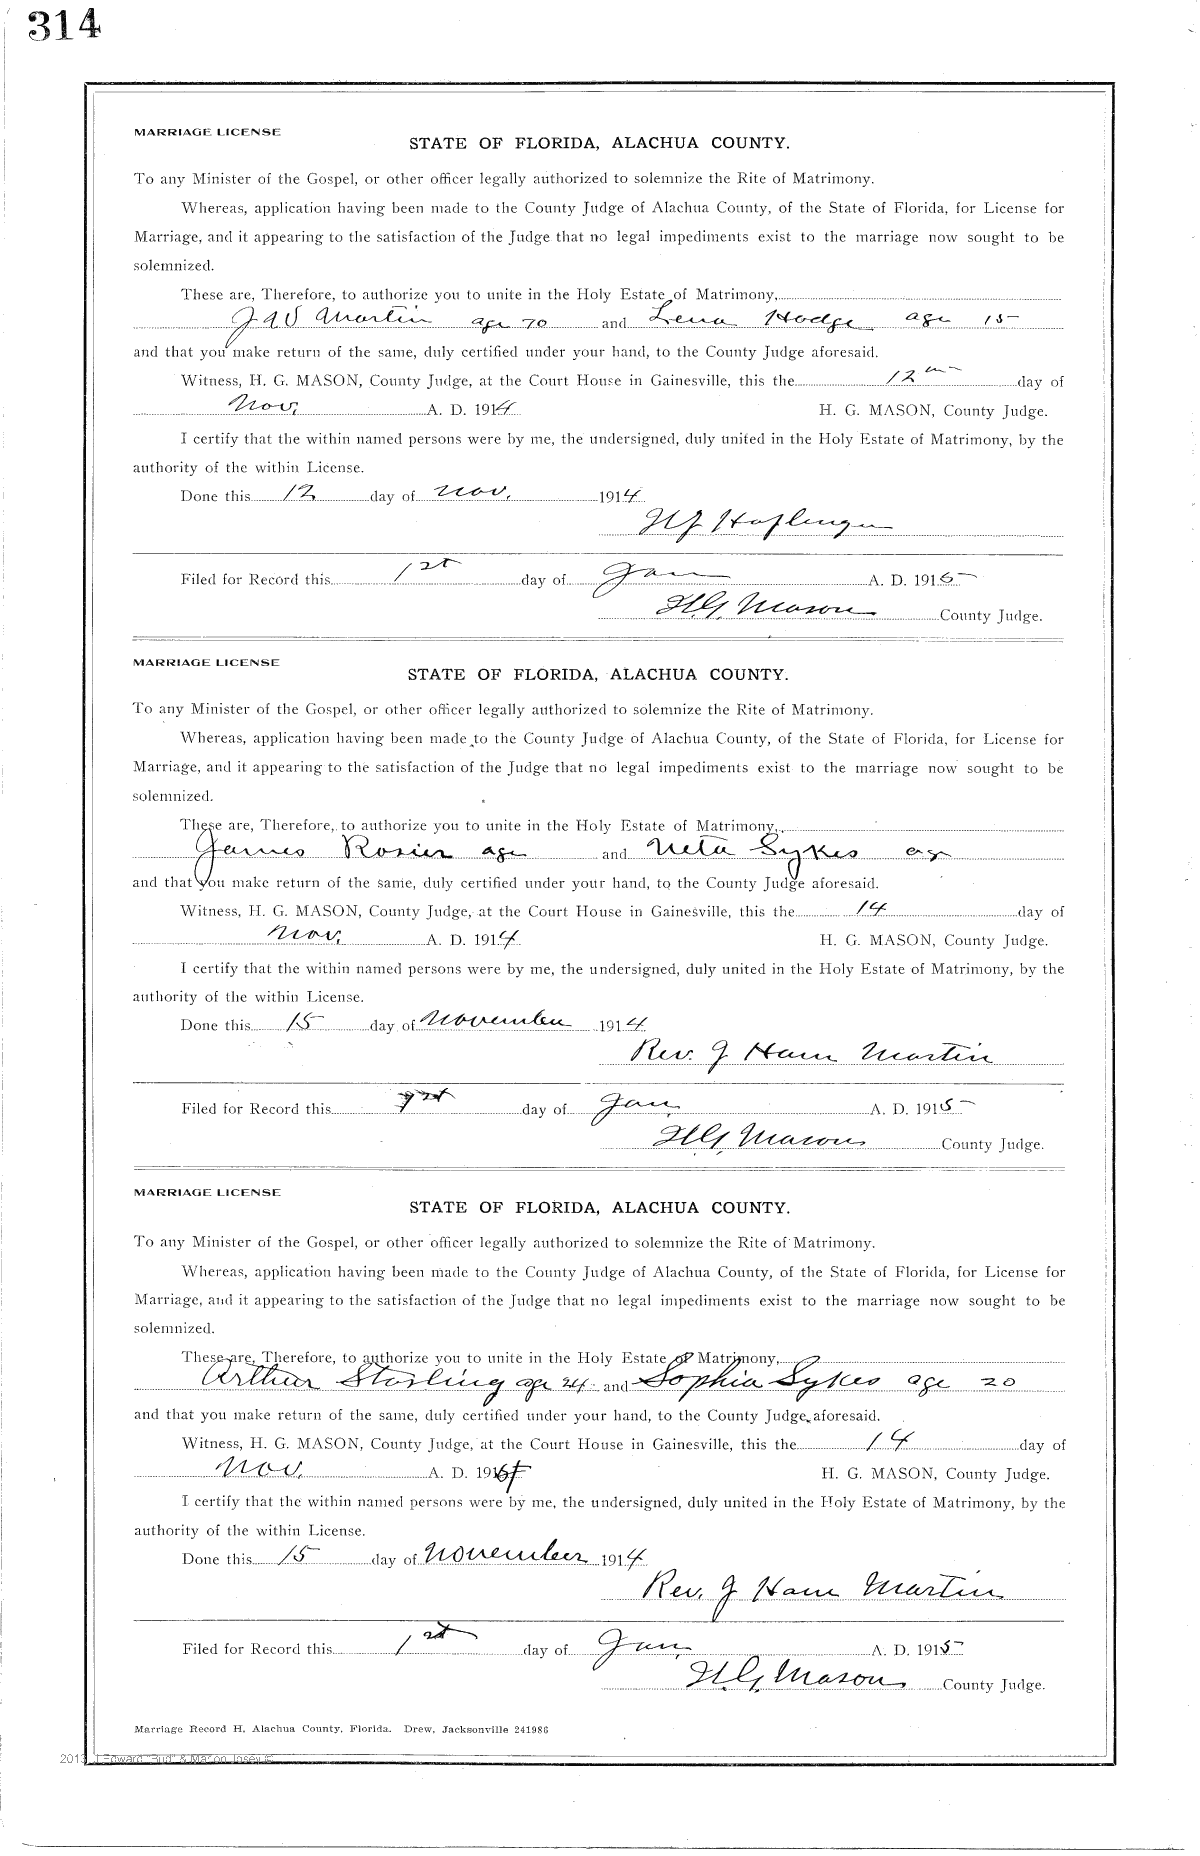 314
MARRIAGE LICENSE
STATE OF FLORIDA, ALACHUA COUNTY.
To any Minister of the Gospel, or other officer legally authorized to solemnize the Rite of Matrimony.
Whereas, application having been made to the County Judge of Alachua County, of the State of Florida, for License for
Marriage, and it appearing to the satisfaction of the Judge that no legal impediments exist to the marriage now sought to be
solemnized.
These are, Therefore, to authorize you to unite in the Holy Estate of Matrimony,
Martin age 70 and Lena Hodge age 15
and that you make return of the same, duly certified under your hand, to the County Judge aforesaid.
Witness, H. G. MASON, County Judge, at the Court House in Gainesville, this the 12 day of
Nov. A. D. 1914 H. G. MASON, County Judge.
I certify that the within named persons were by me, the undersigned, duly united in the Holy Estate of Matrimony, by the
authority of the within License.
Done this 12 day of Nov. 1914
Filed for Record this 1st day of Jan A. D. 1915
H. G. Mason County Judge.
MARRIAGE LICENSE
STATE OF FLORIDA, ALACHUA COUNTY.
To any Minister of the Gospel, or other officer legally authorized to solemnize the Rite of Matrimony.
Whereas, application having been made to the County Judge of Alachua County, of the State of Florida, for License for
Marriage, and it appearing to the satisfaction of the Judge that no legal impediments exist to the marriage now sought to be
solemnized.
These are, Therefore, to authorize you to unite in the Holy Estate of Matrimony,
James Rosier age and Neta Sykes age
and that you make return of the same, duly certified under your hand, to the County Judge aforesaid.
Witness, H. G. MASON, County Judge, at the Court House in Gainesville, this the 14 day of
Nov. A. D. 1914 H. G. MASON, County Judge.
I certify that the within named persons were by me, the undersigned, duly united in the Holy Estate of Matrimony, by the
authority of the within License.
Done this 15 day of November 1914
Rev. J Ham Martin
Filed for Record this 1st day of Jan. A. D. 1915
H. G. Mason County Judge.
MARRIAGE LICENSE
STATE OF FLORIDA, ALACHUA COUNTY.
To any Minister of the Gospel, or other officer legally authorized to solemnize the Rite of Matrimony.
Whereas, application having been made to the County Judge of Alachua County, of the State of Florida, for License for
Marriage, and it appearing to the satisfaction of the Judge that no legal impediments exist to the marriage now sought to be
solemnized.
These are, Therefore, to authorize you to unite in the Holy Estate of Matrimony,
Arthur Starling age 24 and Sophia Sykes age 20
and that you make return of the same, duly certified under your hand, to the County Judge aforesaid.
Witness, H. G. MASON, County Judge, at the Court House in Gainesville, this the 14 day of
Nov. A. D. 1914 H. G. MASON, County Judge.
I certify that the within named persons were by me, the undersigned, duly united in the Holy Estate of Matrimony, by the
authority of the within License.
Done this 15 day of November 1914
Rev. J Ham Martin
Filed for Record this 1st day of Jan. A. D. 1915
H. G. Mason County Judge.
Marriage Record H, Alachua County, Florida. Drew, Jacksonville 241986
2013 J Edward "Bud" &